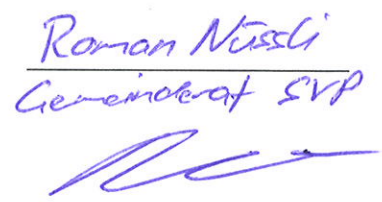 Roman Nüssli
Gemeinderat SVP